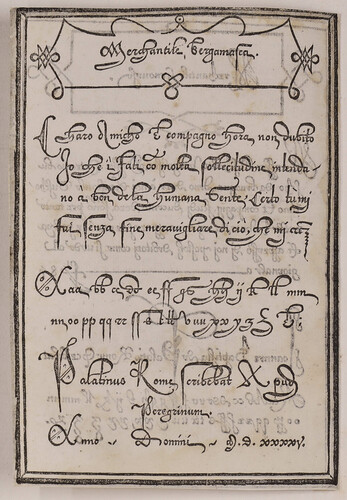 Merchantile Bergamasca.
Charo Amicho & compagno hora non dubito
Io che i fati cō molta sollecitudine intenda-
no a ben de la humana Gente. Certo tu mi
fai senza fine meravigliare di cio, che mi
Xaa bb cc dd ee ff gg hh ij kk ll mm
nn oo pp qq rr ss tt v uu xx y z
Palatinus Rome scribebat Apud
Peregrinum.
Anno Domini M.D.XXXXV.